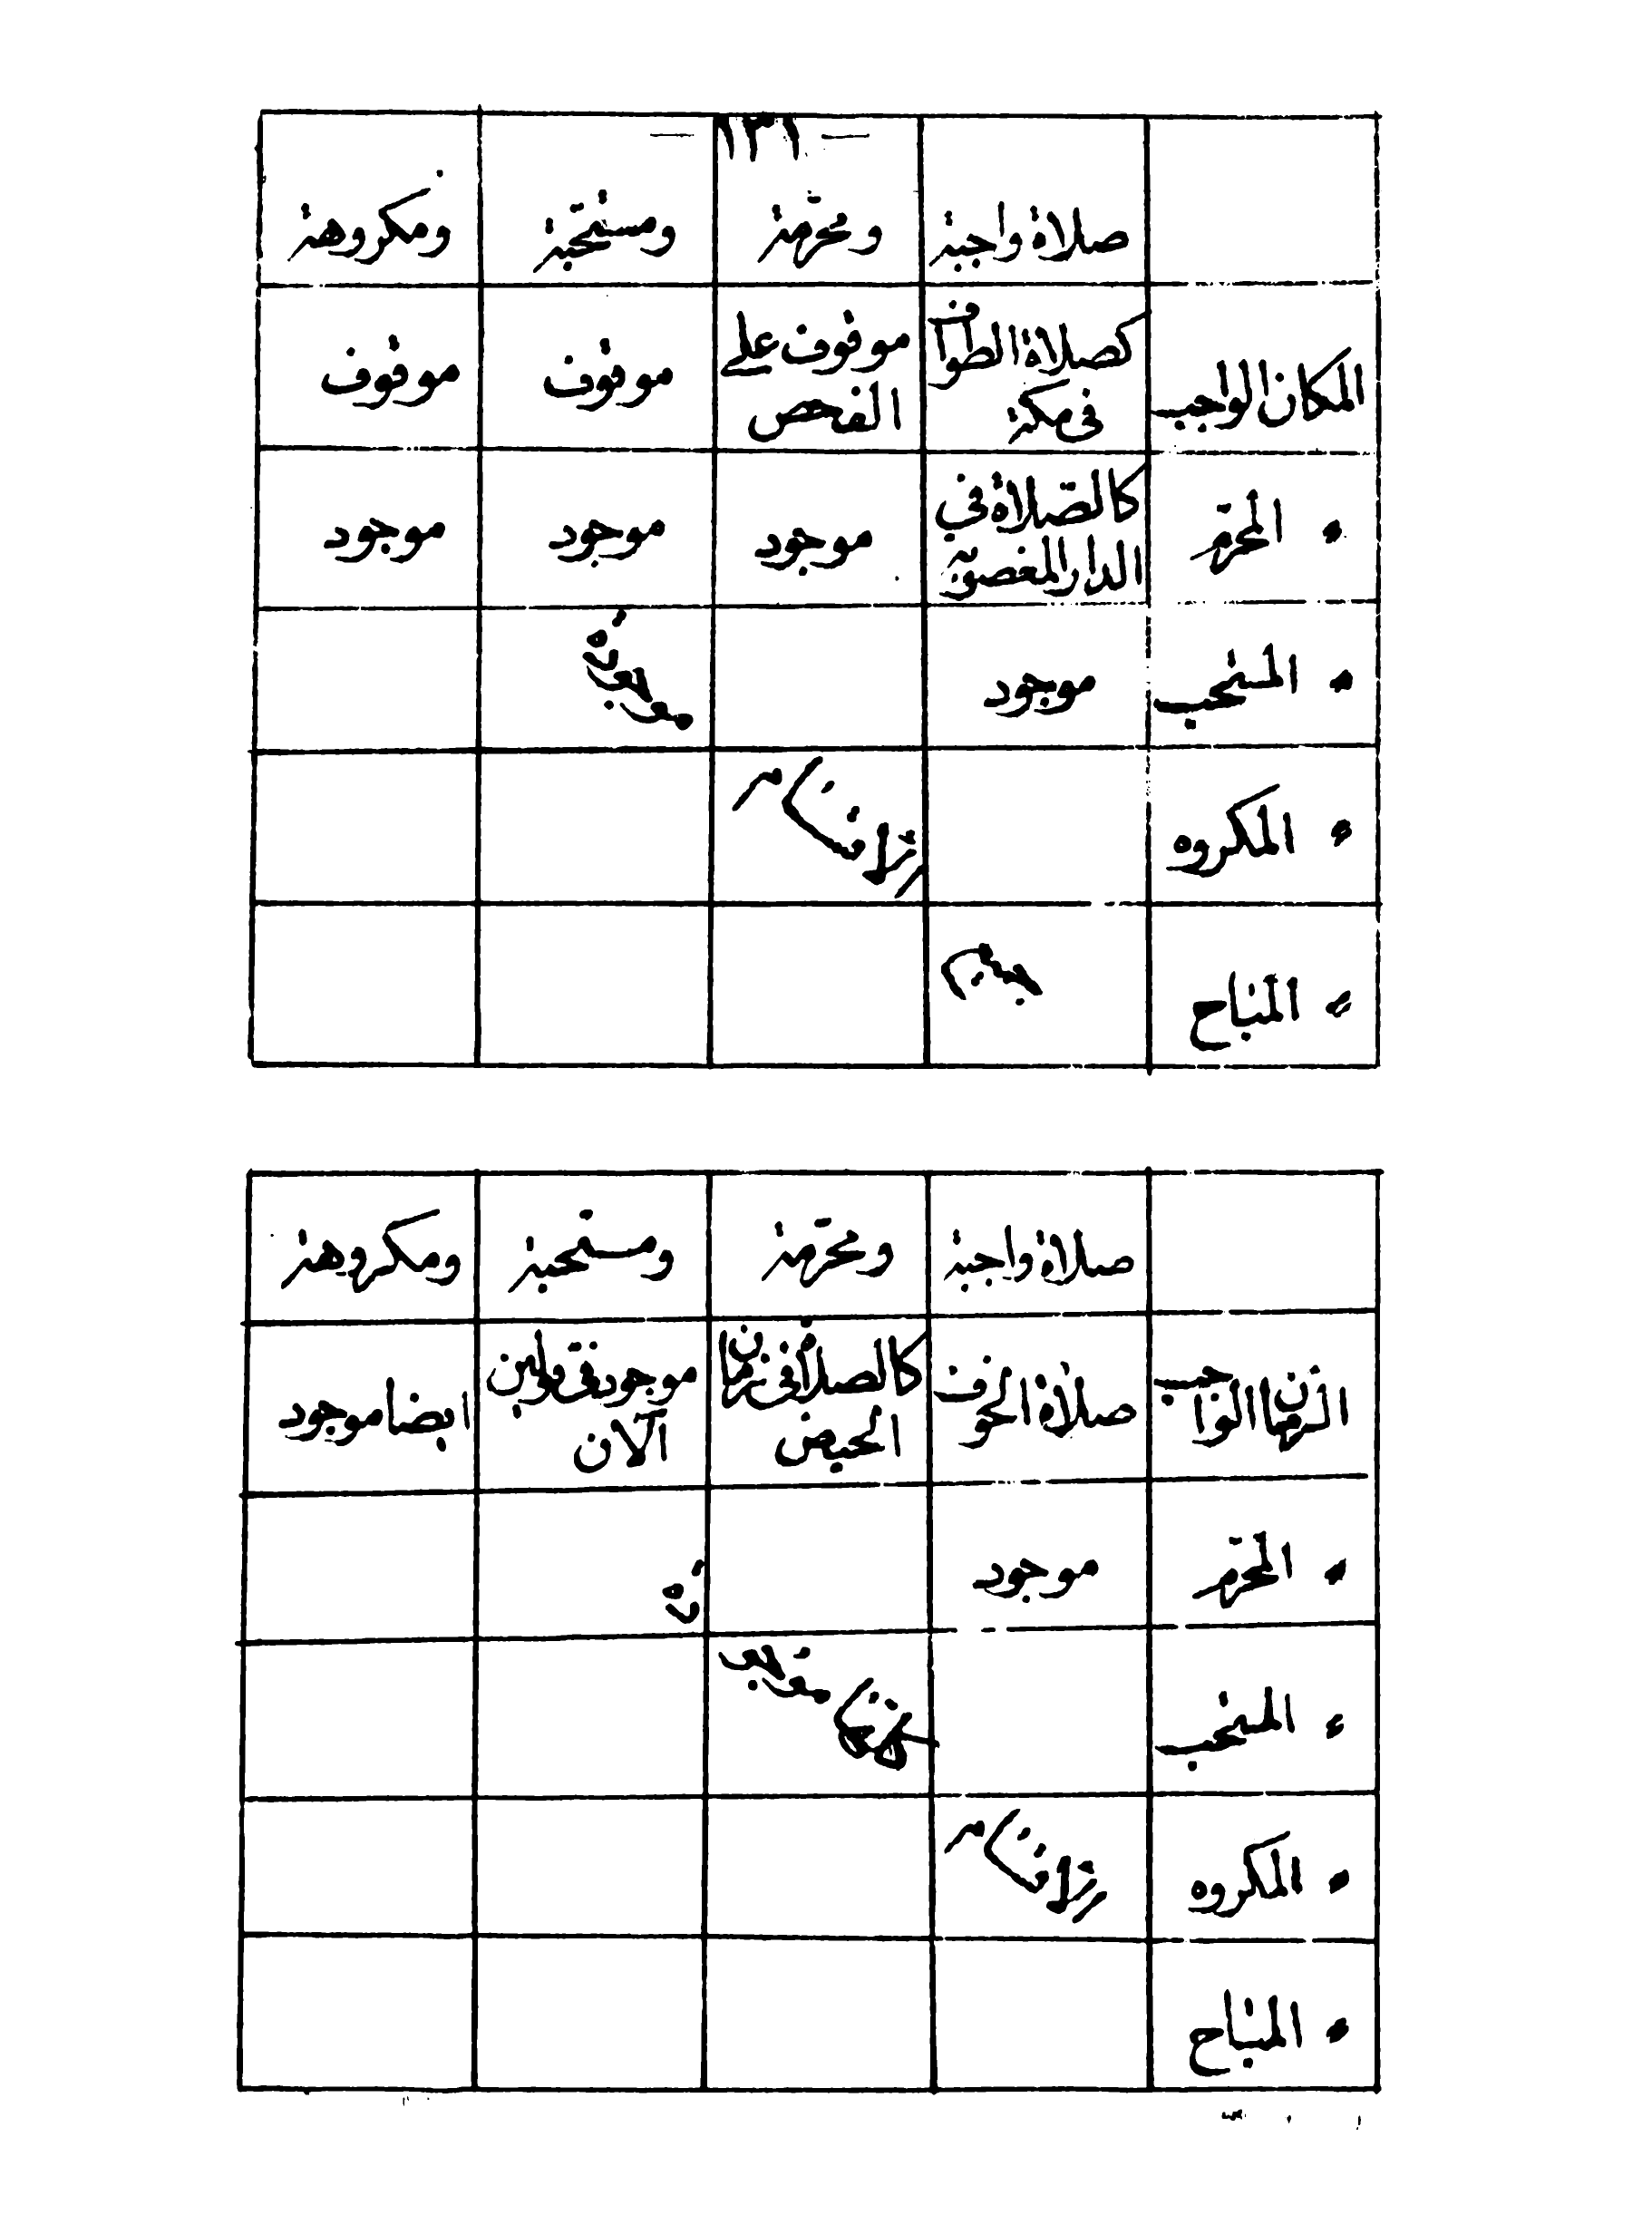 — ١٣١ —
صلاة واجبة ومحرّمة ومستحبّة ومكروهة
المكان الواجب كصلاة الطواف في مكة موقوف على الفحص موقوف موقوف
〃 المحرّم كالصّلاة في الدار المغصوبة موجود موجود موجود
〃 المستحب موجود
〃 المكروه
〃 المباح
صلاة واجبة ومحرّمة ومستحبة ومكروهة
الزمان الواجب صلاة الخوف كالصلاة في زمان الحيض موجود في قولين الآن ايضا موجود
〃 المحرّم موجود
〃 المستحب
〃 المكروه
〃 المباح